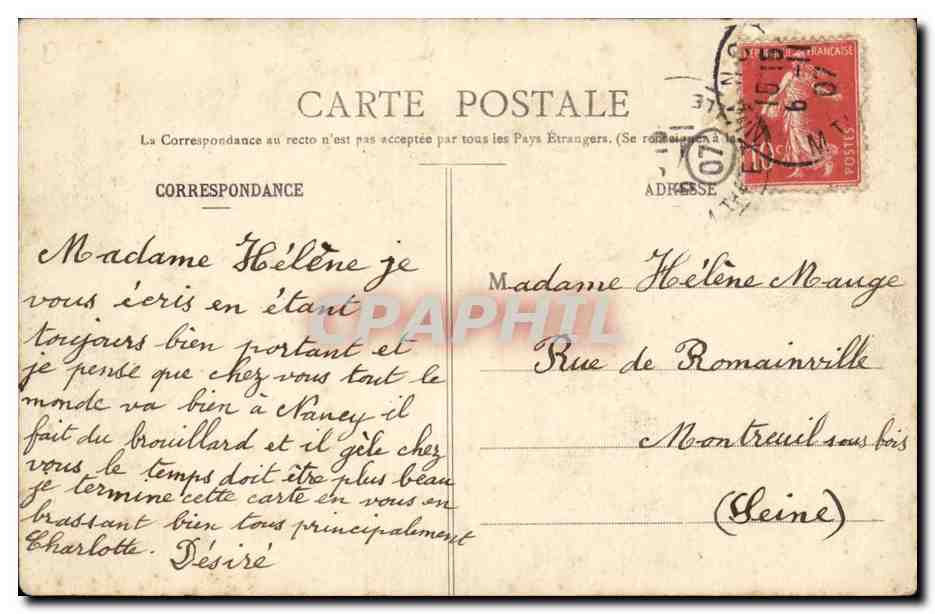 CARTE POSTALE
La Correspondance au recto n'est pas acceptée par tous les Pays Étrangers. (Se renseigner à la
CORRESPONDANCE
ADRESSE
RÉPUBLIQUE FRANÇAISE
10c
POSTES
10 15
6 - 1
07
07
Madame Hélène je
vous écris en étant
toujours bien portant et
je pense que chez vous tout le
monde va bien à Nancy il
fait du brouillard et il gèle chez
vous le temps doit être plus beau
je termine cette carte en vous en
brassant bien tous principalement
Charlotte. Désiré
Madame Hélène Mauge
Rue de Romainville
Montreuil sous bois
(Seine)
CPAPHIL